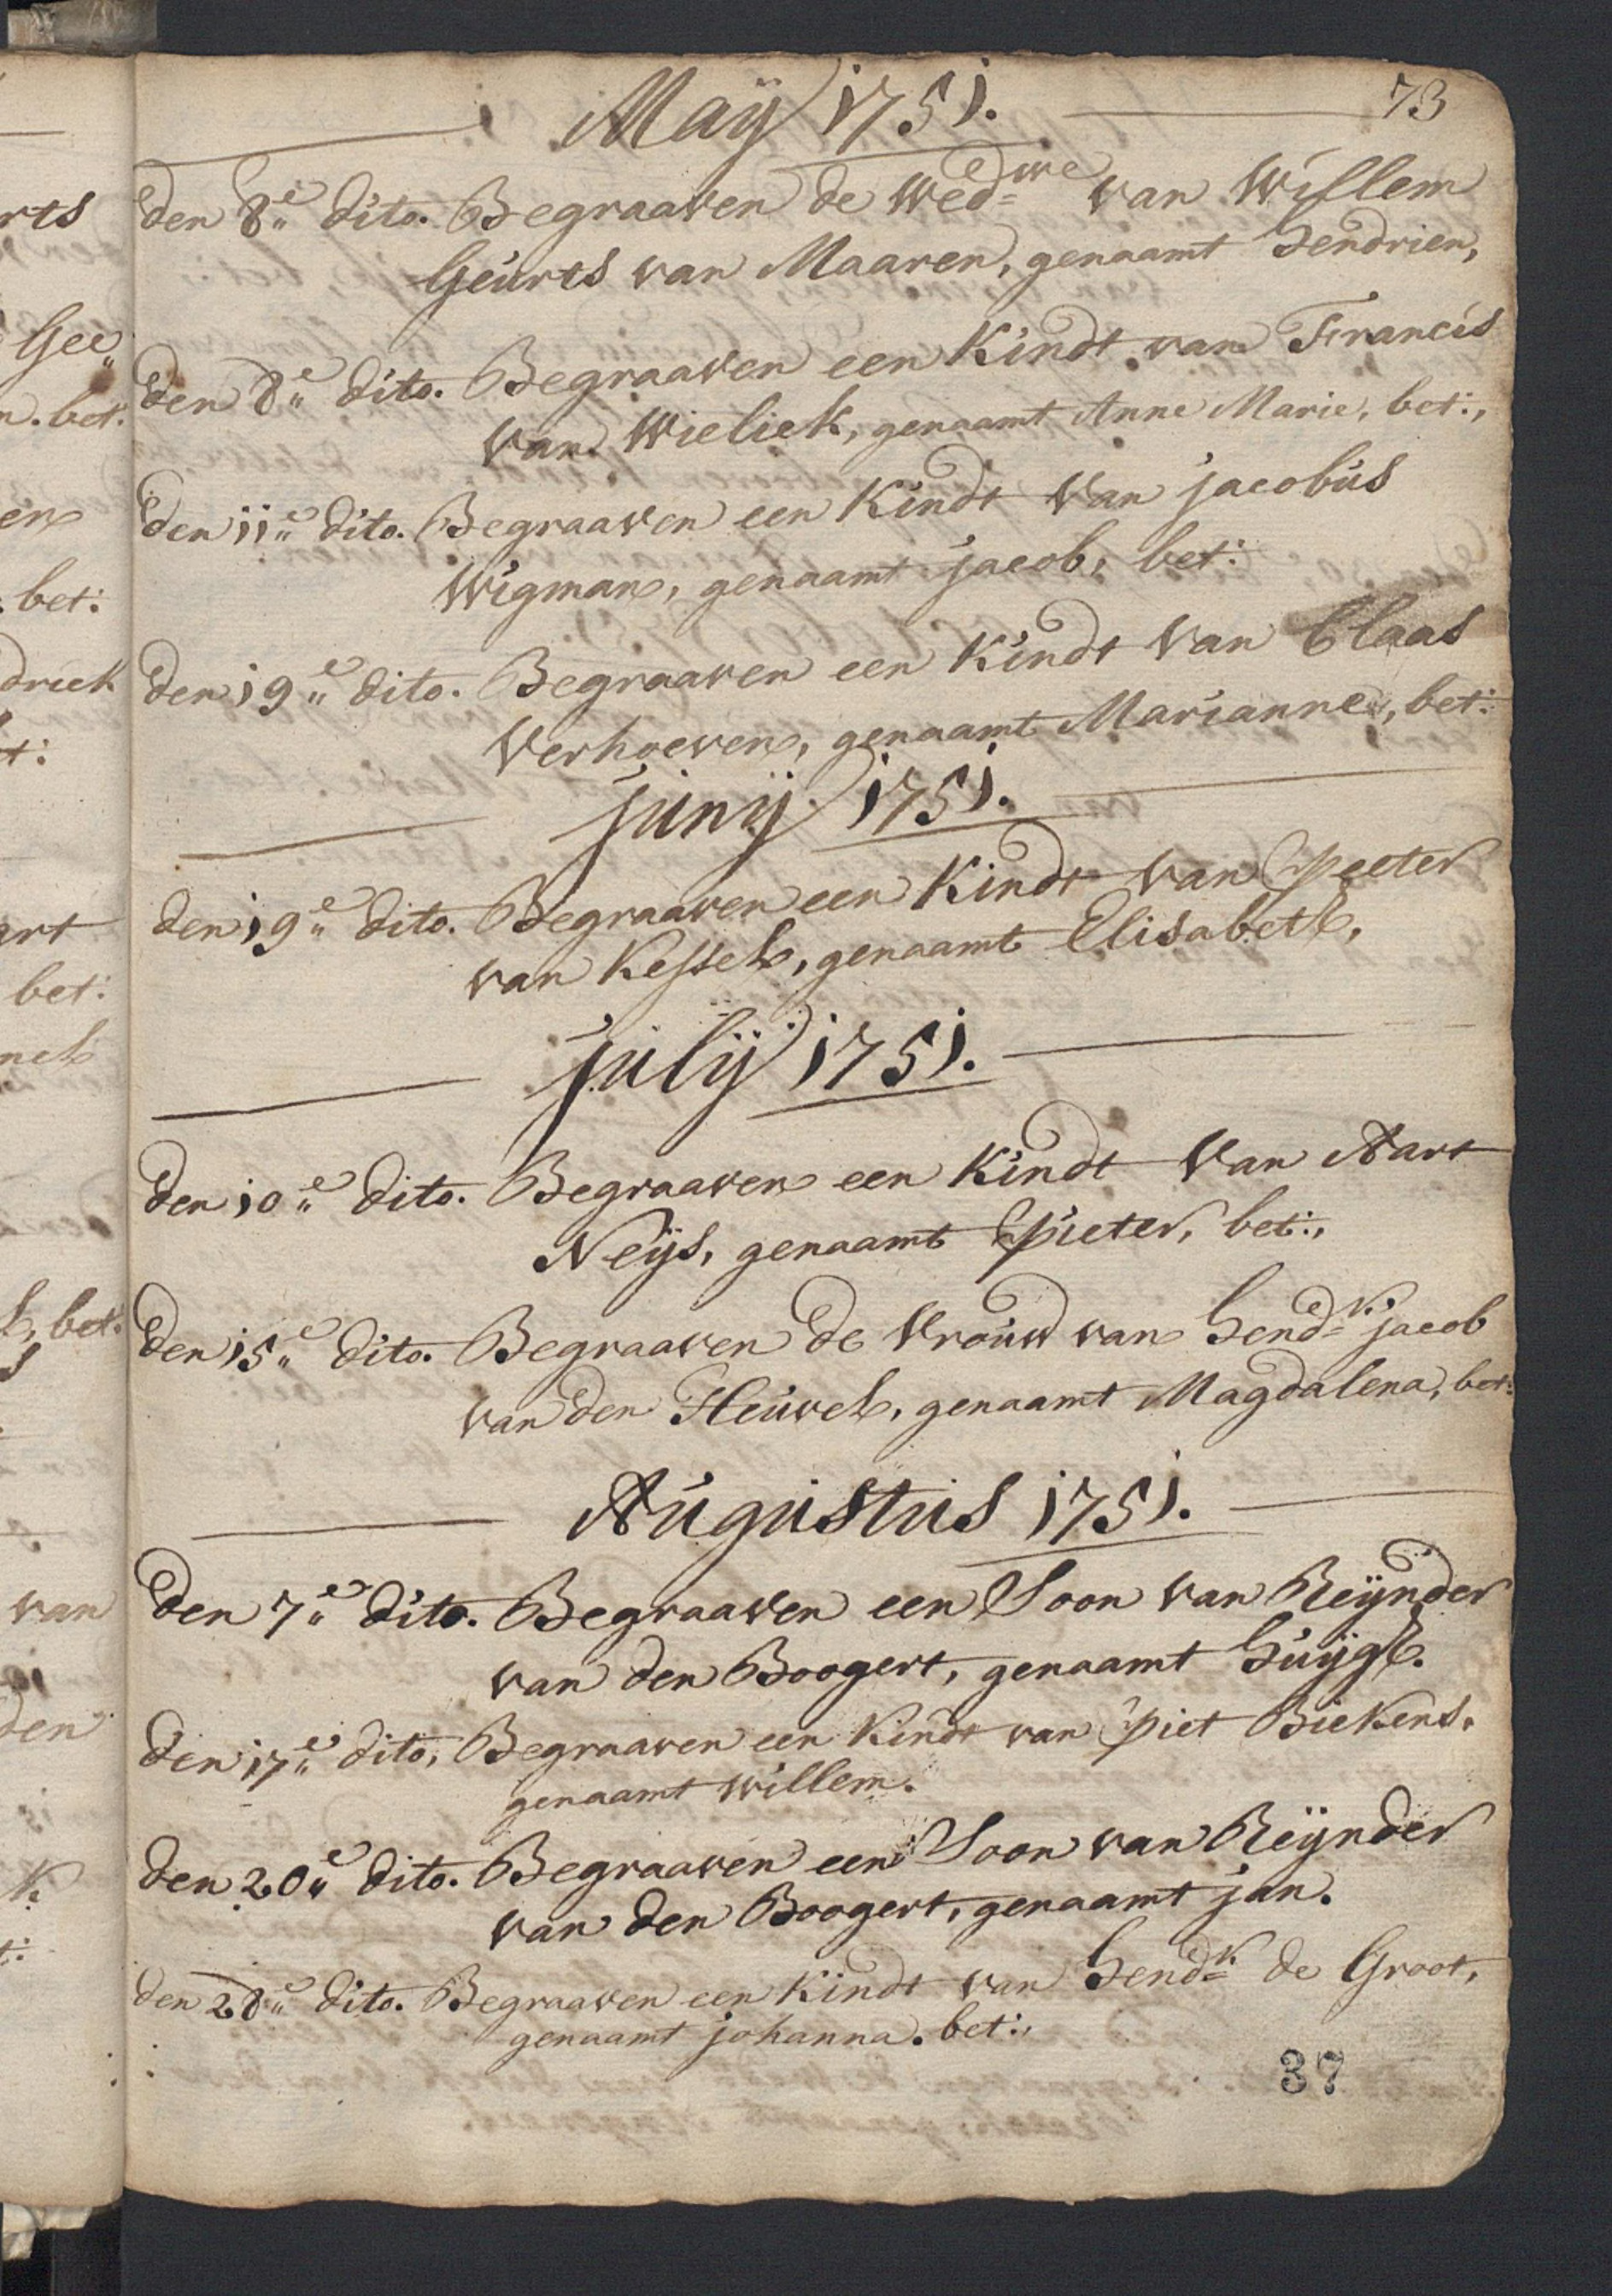 Maÿ 1751.
73
den 8e dito. Begraaven de Wedwe van Willem
Geurts van Maaren, genaamt Hendrien,
den 8e dito. Begraaven een Kindt van Francis
van Wieliek, genaamt Anne Marie, bet:,
den 11e dito. Begraaven een Kindt van jacobus
Wigman, genaamt jacob, bet:
den 19e dito. Begraaven een Kindt van Claas
Verhoeven, genaamt Marianne, bet:
junij 1751.
den 19e dito. Begraaven een Kindt van Peeter
van Kessel, genaamt Elisabeth,
julij 1751.
den 10e dito. Begraaven een Kindt van Aart
Neijs, genaamt Pieter, bet:,
den 15e dito. Begraaven de Vrouw van Hendk jacob
van den Heuvel, genaamt Magdalena, bet:
Augustus 1751.
den 7e dito. Begraaven een Soon van Reijnder
van den Boogert, genaamt Huijgh.
den 17e dito, Begraaven een Kindt van Piet Biekens,
genaamt Willem.
den 20e dito. Begraaven een Soon van Reijnder
van den Boogert, genaamt jan.
den 28e dito. Begraaven een Kindt van Hendk de Groot,
genaamt johanna. bet:,
37
rts
Gee
n. bet:
en
bet:
driek
t:
art
bet:
nel
l, bet:
s
van
den
k
t: